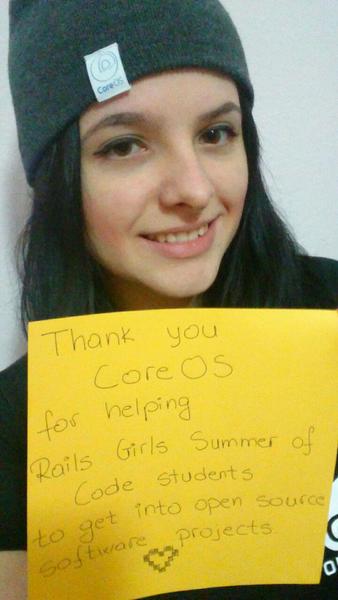 CoreOS
Thank you
CoreOS
for helping
Rails Girls Summer of
Code students
to get into open source
software projects.